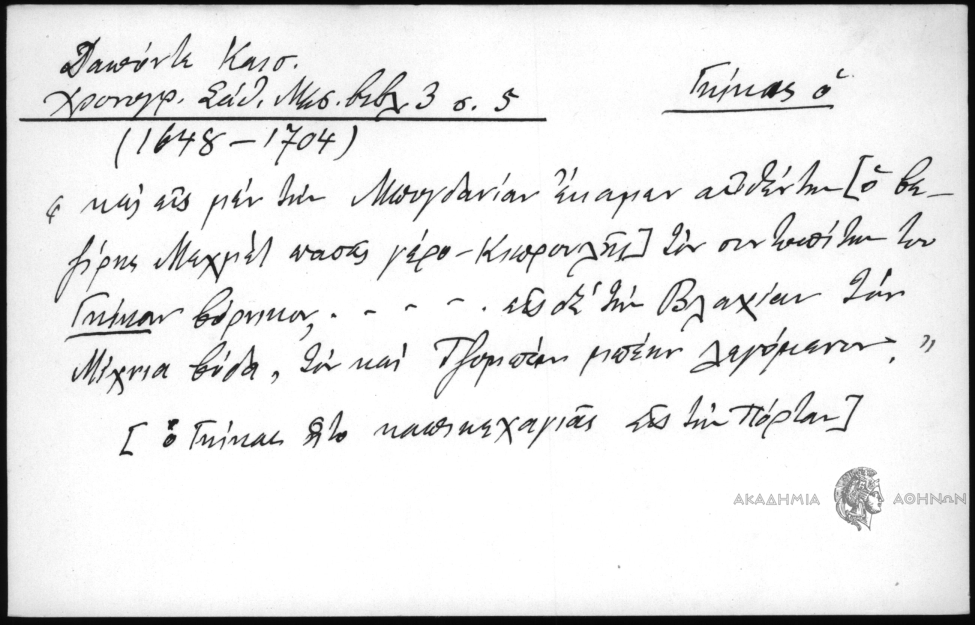 Δαπόντε Καισ.
Χρονογρ. Σάθ. Μεσ. βιβλ. 3 σ. 5
Γκίκας ὁ
(1648 – 1704)
« καὶ εἰς μὲν τὴν Μπογδανίαν ἔκαμεν αὐθέντην [ὁ βε-
ζίρης Μεχμὲτ πασᾶς γέρο-Κιοπρουλῆς] τὸν συντοπίτην του
Γκίκαν βόρνικον, . - - - . εἰς δὲ τὴν Βλαχίαν τὸν
Μίχνια βόδα, τὸν καὶ Τζομπὰν μπέην λεγόμενον, »
[ὁ Γκίκας ἦτο καπικεχαγιᾶς εἰς τὴν Πόρταν]
ΑΚΑΔΗΜΙΑ ΑΘΗΝΩΝ